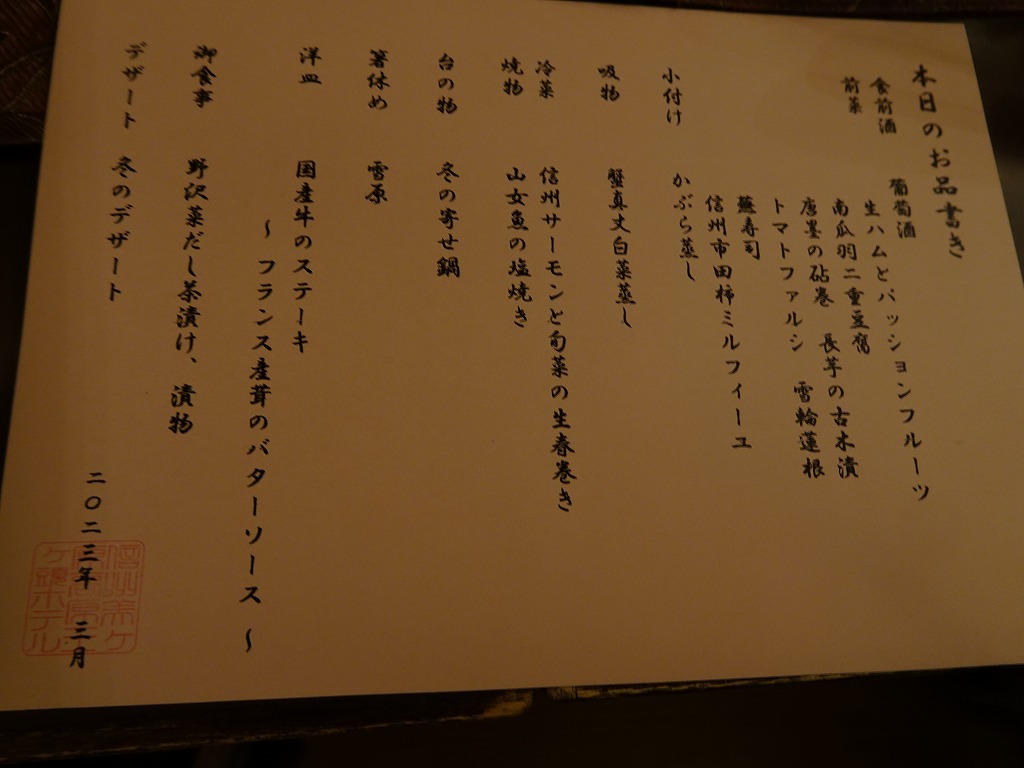 本日のお品書き
食前酒 葡萄酒
前菜 生ハムとパッションフルーツ
南瓜羽二重豆腐
唐墨の砧巻 長芋の古木漬
トマトファルシ 雪輪蓮根
蕪寿司
信州市田柿ミルフィーユ
小付け かぶら蒸し
吸物 蟹真丈白菜蒸し
冷菜 信州サーモンと旬菜の生春巻き
焼物 山女魚の塩焼き
台の物 冬の寄せ鍋
箸休め 雪原
洋皿 国産牛のステーキ
~ フランス産茸のバターソース ~
御食事 野沢菜だし茶漬け、漬物
デザート 冬のデザート
二〇二三年 三月